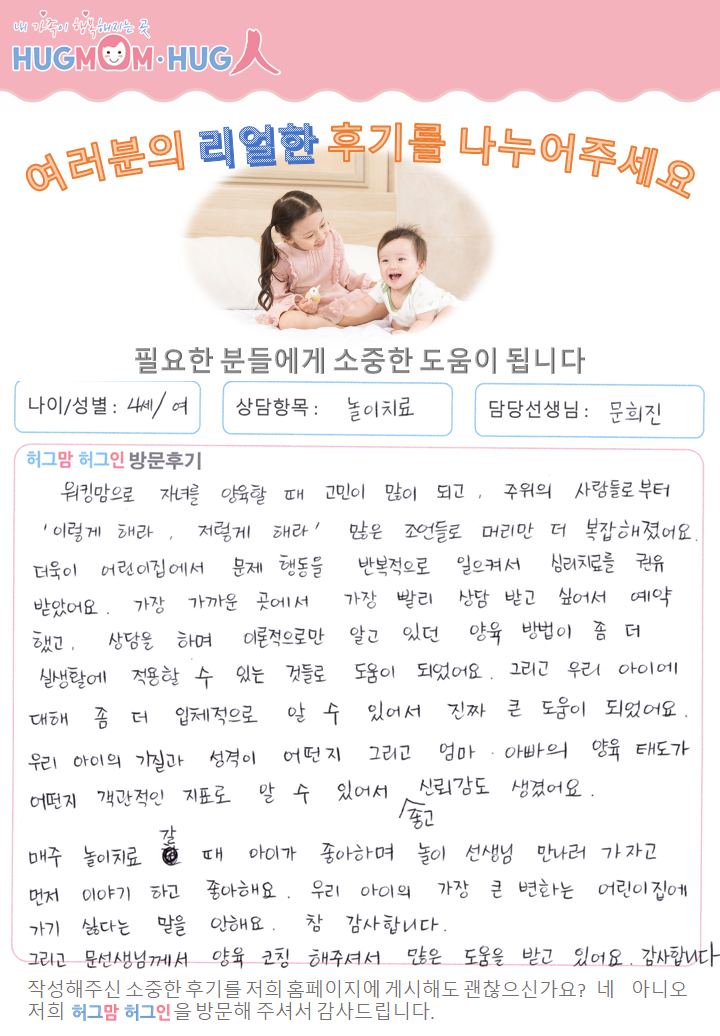 내 가족이 행복해지는 곳
HUGMOM·HUG人
여러분의 리얼한 후기를 나누어주세요
필요한 분들에게 소중한 도움이 됩니다
나이/성별 : 4세/ 여
상담항목 : 놀이치료
담당선생님 : 문희진
허그맘 허그인 방문후기
워킹맘으로 자녀를 양육할 때 고민이 많이 되고, 주위의 사람들로부터
'이렇게 해라, 저렇게 해라' 많은 조언들로 머리만 더 복잡해졌어요.
더욱이 어린이집에서 문제 행동을 반복적으로 일으켜서 심리치료를 권유
받았어요. 가장 가까운 곳에서 가장 빨리 상담 받고 싶어서 예약
했고, 상담을 하며 이론적으로만 알고 있던 양육 방법이 좀 더
실생활에 적용할 수 있는 것들로 도움이 되었어요. 그리고 우리 아이에
대해 좀 더 입체적으로 알 수 있어서 진짜 큰 도움이 되었어요.
우리 아이의 기질과 성격이 어떤지 그리고 엄마·아빠의 양육 태도가
어떤지 객관적인 지표로 알 수 있어서 좋고 신뢰감도 생겼어요.
매주 놀이치료 갈 때 아이가 좋아하며 놀이 선생님 만나러 가자고
먼저 이야기 하고 좋아해요. 우리 아이의 가장 큰 변화는 어린이집에
가기 싫다는 말을 안해요. 참 감사합니다.
그리고 문선생님께서 양육 코칭 해주셔서 많은 도움을 받고 있어요. 감사합니다
작성해주신 소중한 후기를 저희 홈페이지에 게시해도 괜찮으신가요? 네 아니오
저희 허그맘 허그인을 방문해 주셔서 감사드립니다.